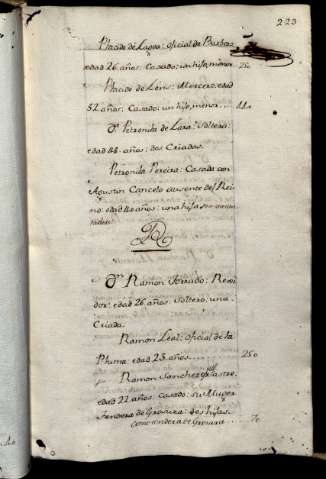 223
Placido de Lagos: oficial de Barbero
edad 26 años. Casado: un hijo menor
Placido de Leris: Mercero, edad
52 años. Casado, un hijo, menor. 440
Dª Petronila de Lara: Soltera:
edad 44 años: dos Criadas.
Petronila Pereira: Casada con
Agustin Cancelo ausente del Rei
no: edad 40 años: una hija
R
Dn Ramon Jurado: Regi
dor: edad 26 años, Soltero, una
Criada.
Ramon Leal: oficial de la
Pluma: edad 25 años 250
Ramon Sanchez Sastre,
edad 22 años, casado: su Muger
tendera de